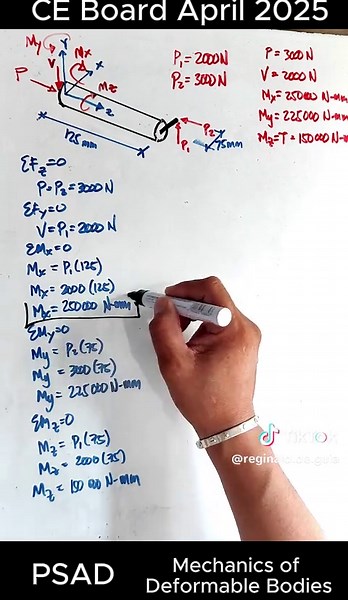 CE Board April 2025
My
Y
Mx
V
x
P
Mz
z
125 mm
P2
P1
75mm
P1 = 2000N
P2 = 3000N
P = 3000N
V = 2000N
Mx = 250000 N-mm
My = 225000 N-mm
Mz = T = 150000 N-mm
ΣFz=0
P=P2=3000N
ΣFy=0
V=P1=2000N
ΣMx=0
Mx = P1(125)
Mx = 2000(125)
Mx = 250000 N-mm
ΣMy=0
My = P2(75)
My = 3000(75)
My = 225000 N-mm
ΣMz=0
Mz = P1(75)
Mz = 2000(75)
Mz = 150000 N-mm
TikTok
PSAD
Mechanics of
Deformable Bodies